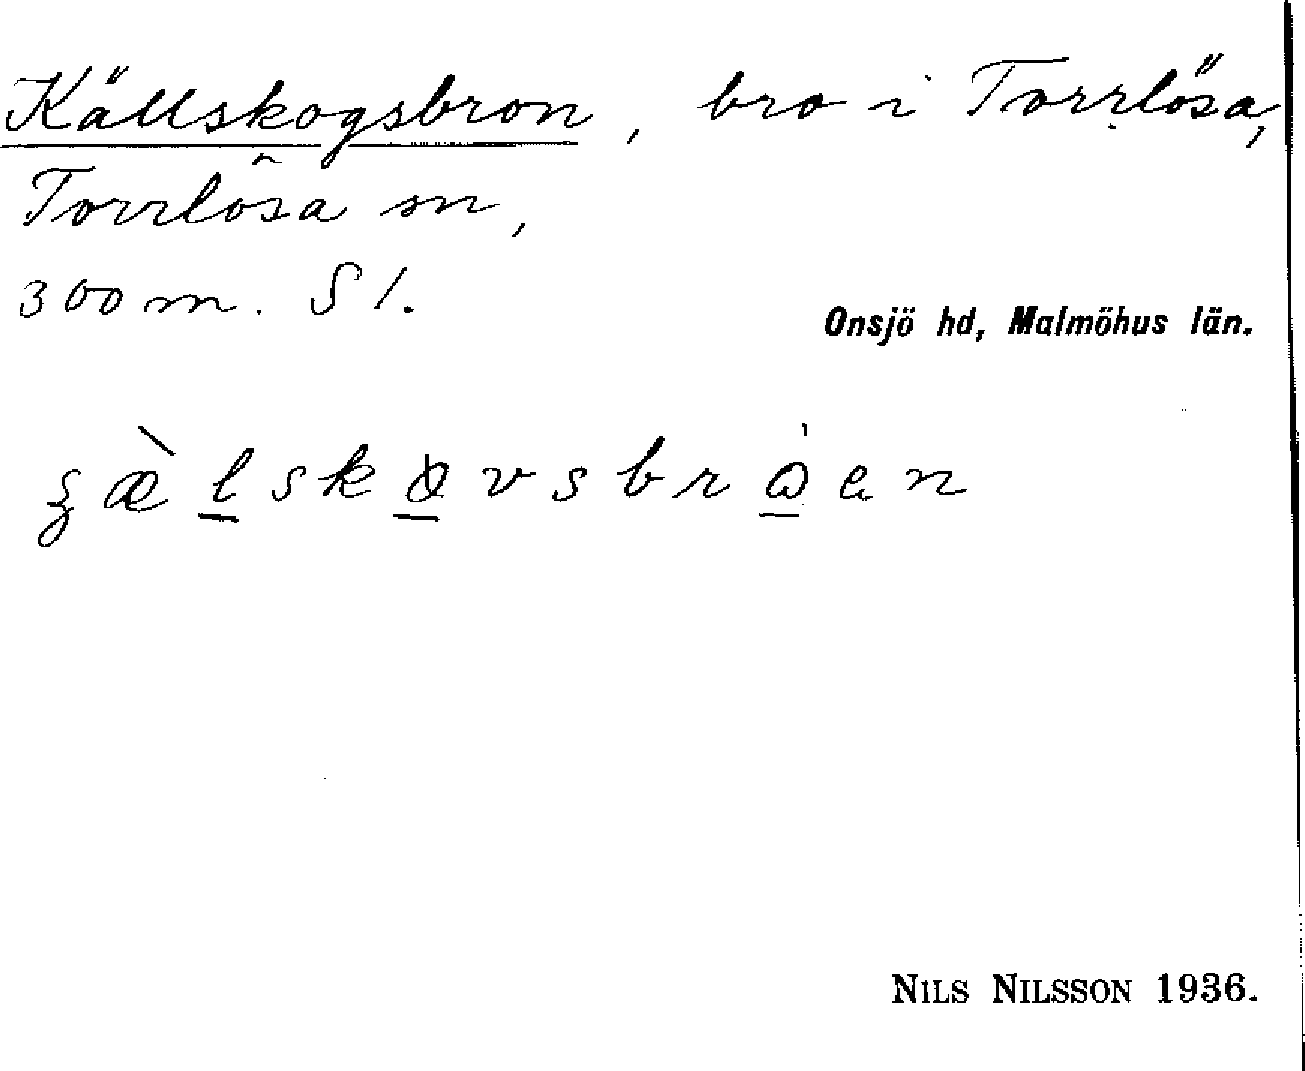 Källskogsbron, bro i Torrlösa,
Torrlösa sn,
300 m. S 1.
Onsjö hd, Malmöhus län.
NILS NILSSON 1936.